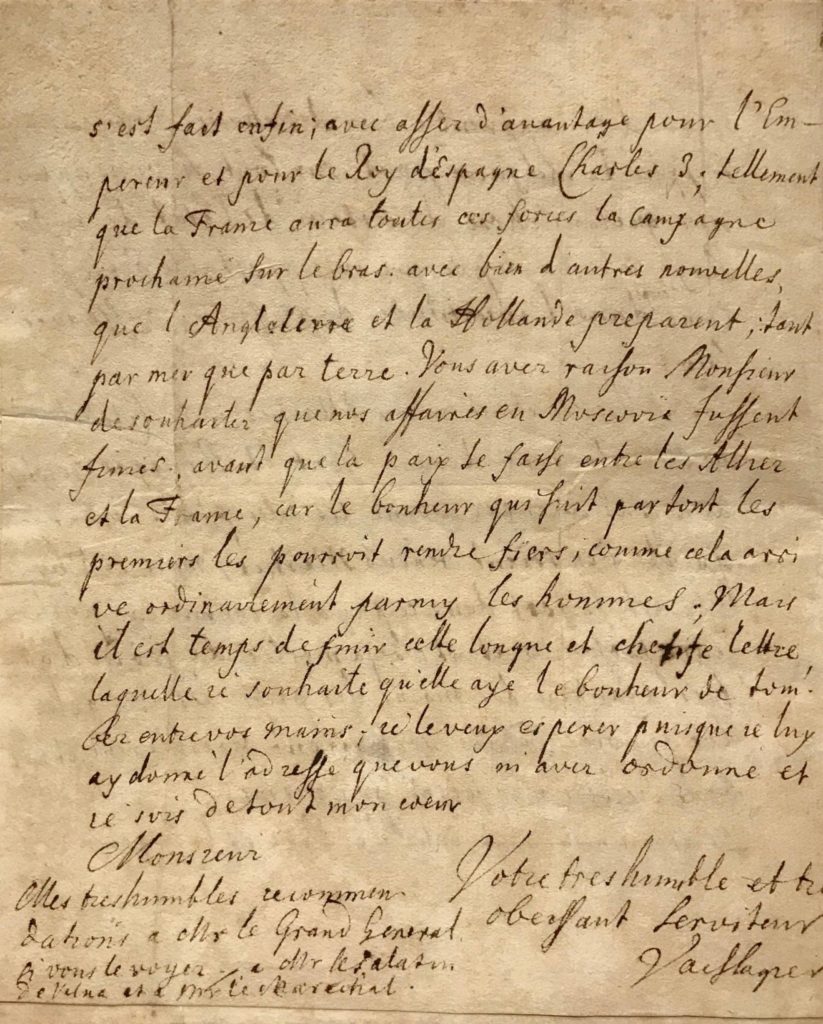 s'est fait enfin; avec asser d'avantage pour l'Em-
pereur et pour le Roy d'Espagne Charles 3; tellement
que la France aura toutes ces forces la campagne
prochaine sur le bras. avec bien d'autres nouvelles,
que l'Angleterre et la Hollande preparent, tant
par mer que par terre. Vous aver raison Monsieur
de souhaiter que nos affaires en Moscovie fussent
finies, avant que la paix se fasse entre les Allier
et la France, car le bonheur qui suit partout les
premiers les pourroit rendre fiers, comme cela arri
ve ordinairement parmy les hommes; Mais
il est temps de finir cette longue et chetife lettre,
laquelle ie souhaite qu'elle aye le bonheur de tom-
ber entre vos mains, ie le veux esperer puisque ie luy
ay donné l'adresse que vous m'aver ordonné et
ie suis de tout mon coeur
Monsieur
Votre treshumble et
obeissant Serviteur
Mes treshumbles recommen
dations a Mr le Grand General
si vous le voyer. a Mr le
de Vilna et a Mr le Marechal.